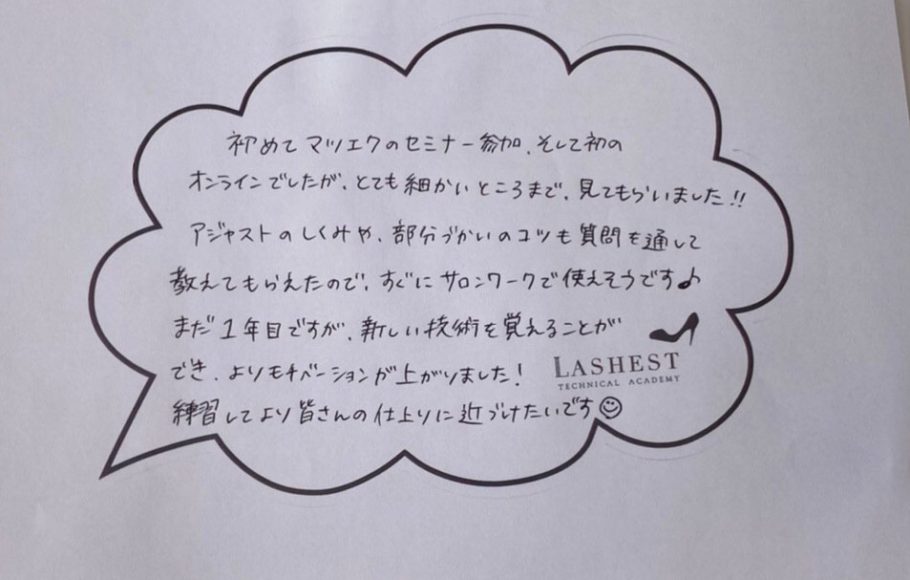 初めて マツエクのセミナー参加、そして初の
オンラインでしたが、とても細かいところまで、見てもらいました!!
アジャストのしくみや、部分づかいのコツも質問を通して
教えてもらえたので、すぐにサロンワークで使えそうです♪
まだ1年目ですが、新しい技術を覚えることが
でき、よりモチベーションが上がりました!
LASHEST
TECHNICAL ACADEMY
練習してより皆さんの仕上りに近づけたいです☺